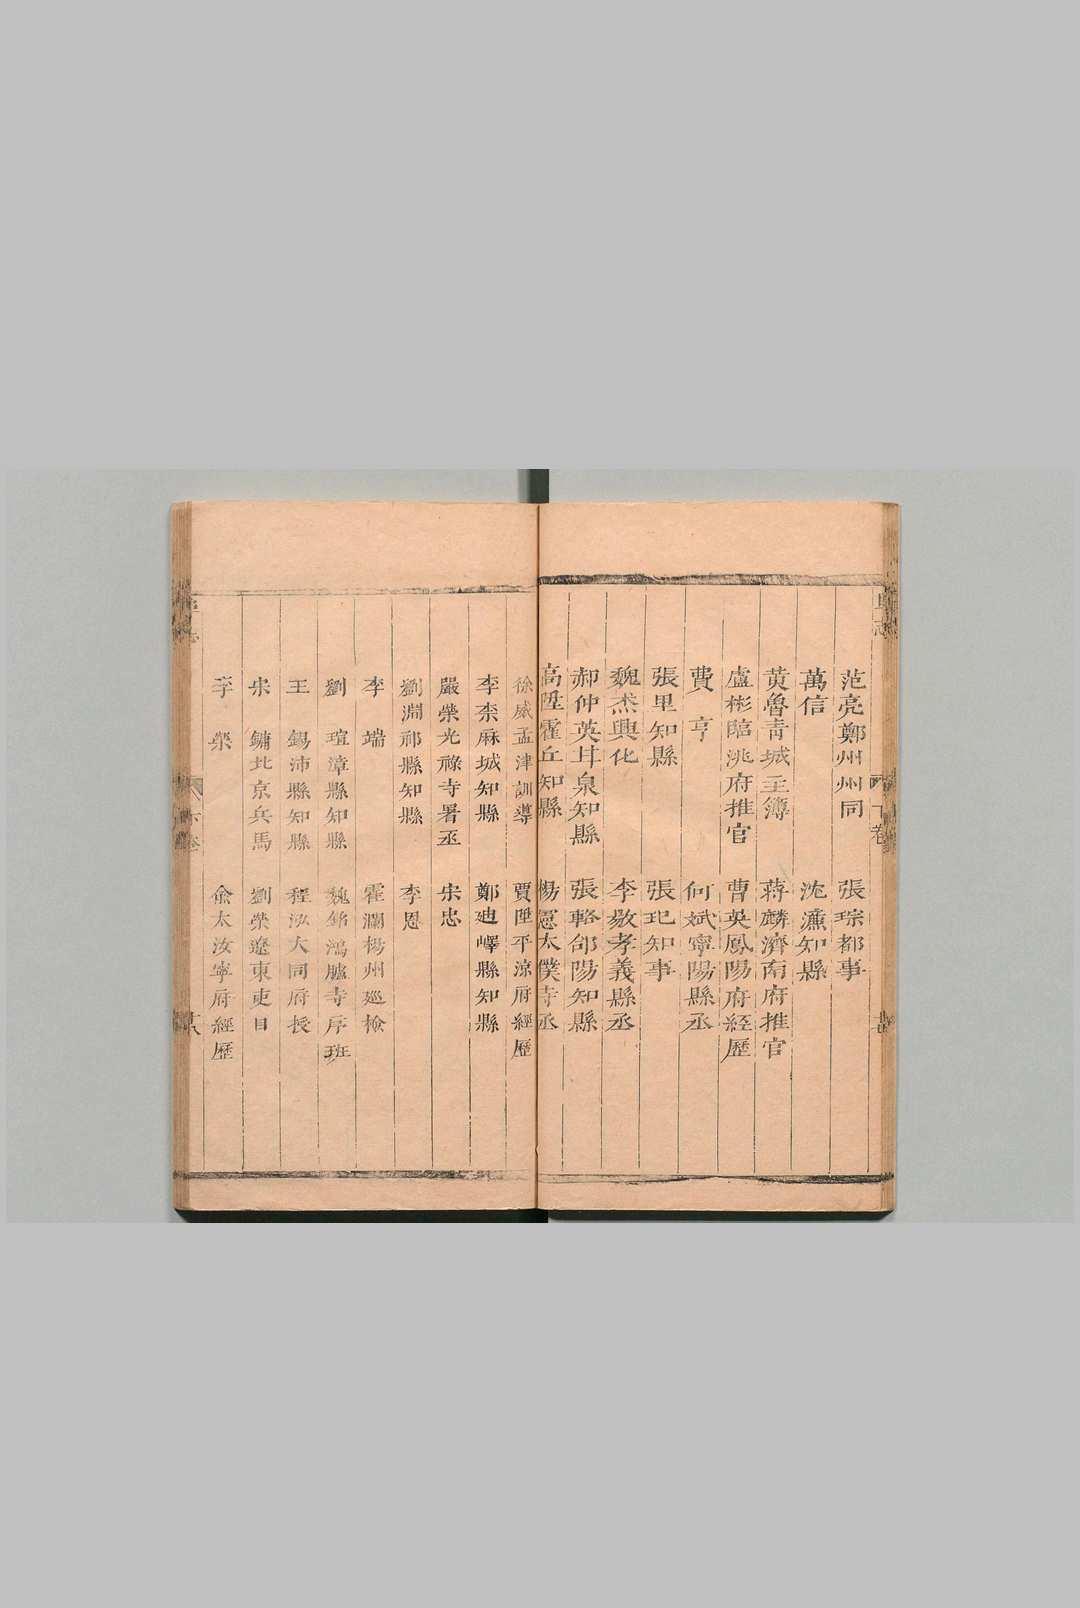 范亮鄭州州同　張琮都事
萬信　沈濂知縣
黄魯青城主簿　蔣麟濟南府推官
盧彬臨洮府推官　曹英鳳陽府經歷
費亨　何斌寧陽縣丞
張里知縣　張玘知事
魏杰興化　李敬孝義縣丞
郝仲英甘泉知縣　張輅郃陽知縣
高陞霍丘知縣　楊憲太僕寺丞
徐威孟津訓導　賈陞平涼府經歷
李柰麻城知縣　鄭迪嶧縣知縣
嚴榮光祿寺署丞　宋忠
劉淵祁縣知縣　李恩
李端　霍瀾楊州廵檢
劉瑄漳縣知縣　魏錦鴻臚寺序班
王錫沛縣知縣　程泓大同府授
宋鏞北京兵馬　劉榮遼東吏目
李榮　俞太汝寧府經歷